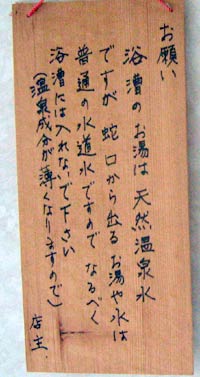 お願い
浴漕のお湯は天然温泉水
ですが 蛇口から出るお湯や水は
普通の水道水ですので なるべく
浴漕には入れないで下さい
(温泉成分が薄くなりますので)
店主.